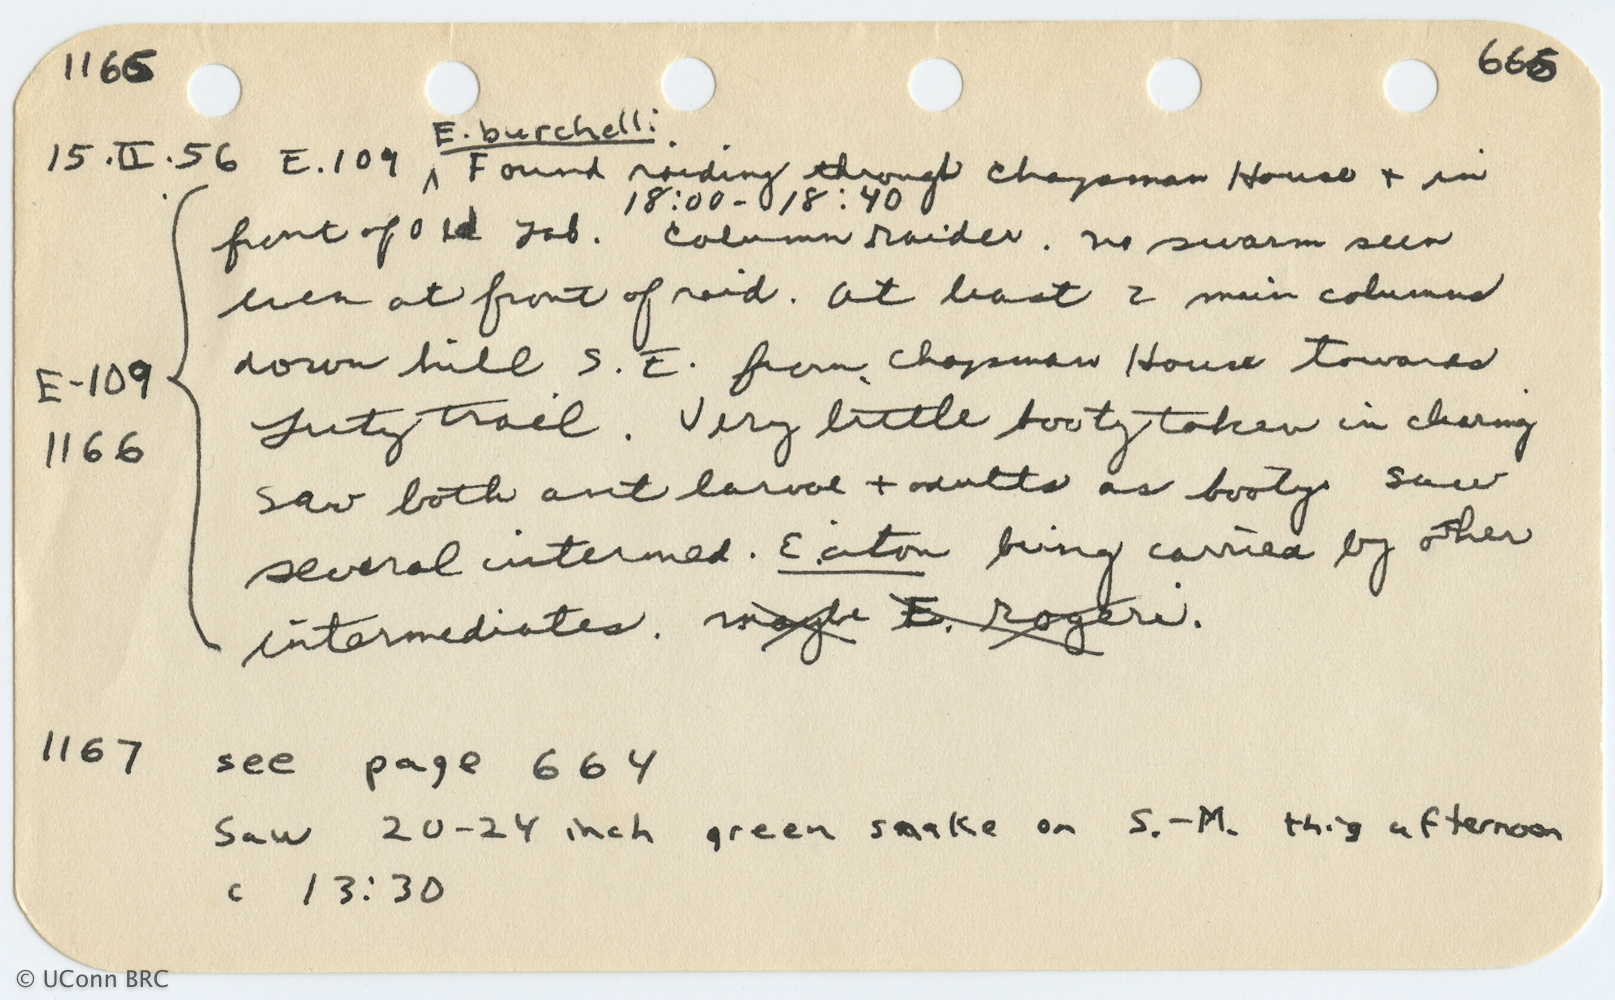 1165 665
E. burchelli.
15.II.56 E.109 ^ Found raiding through Chapsman House + in
18:00- 18:40
front of Old Lab. Column raider. no swarm seen
even at front of raid. at least 2 main columns
down hill S.E. from Chapsman House towards
E-109
Lutz trail. Very little booty taken in
1166
saw both ant larvae + adults as booty. saw
several intermed. Eciton being carried by other
intermediates. maybe E. rogeri.
1167 see page 664
Saw 20-24 inch green snake on S.-M. this afternoon
c 13:30
© UConn BRC